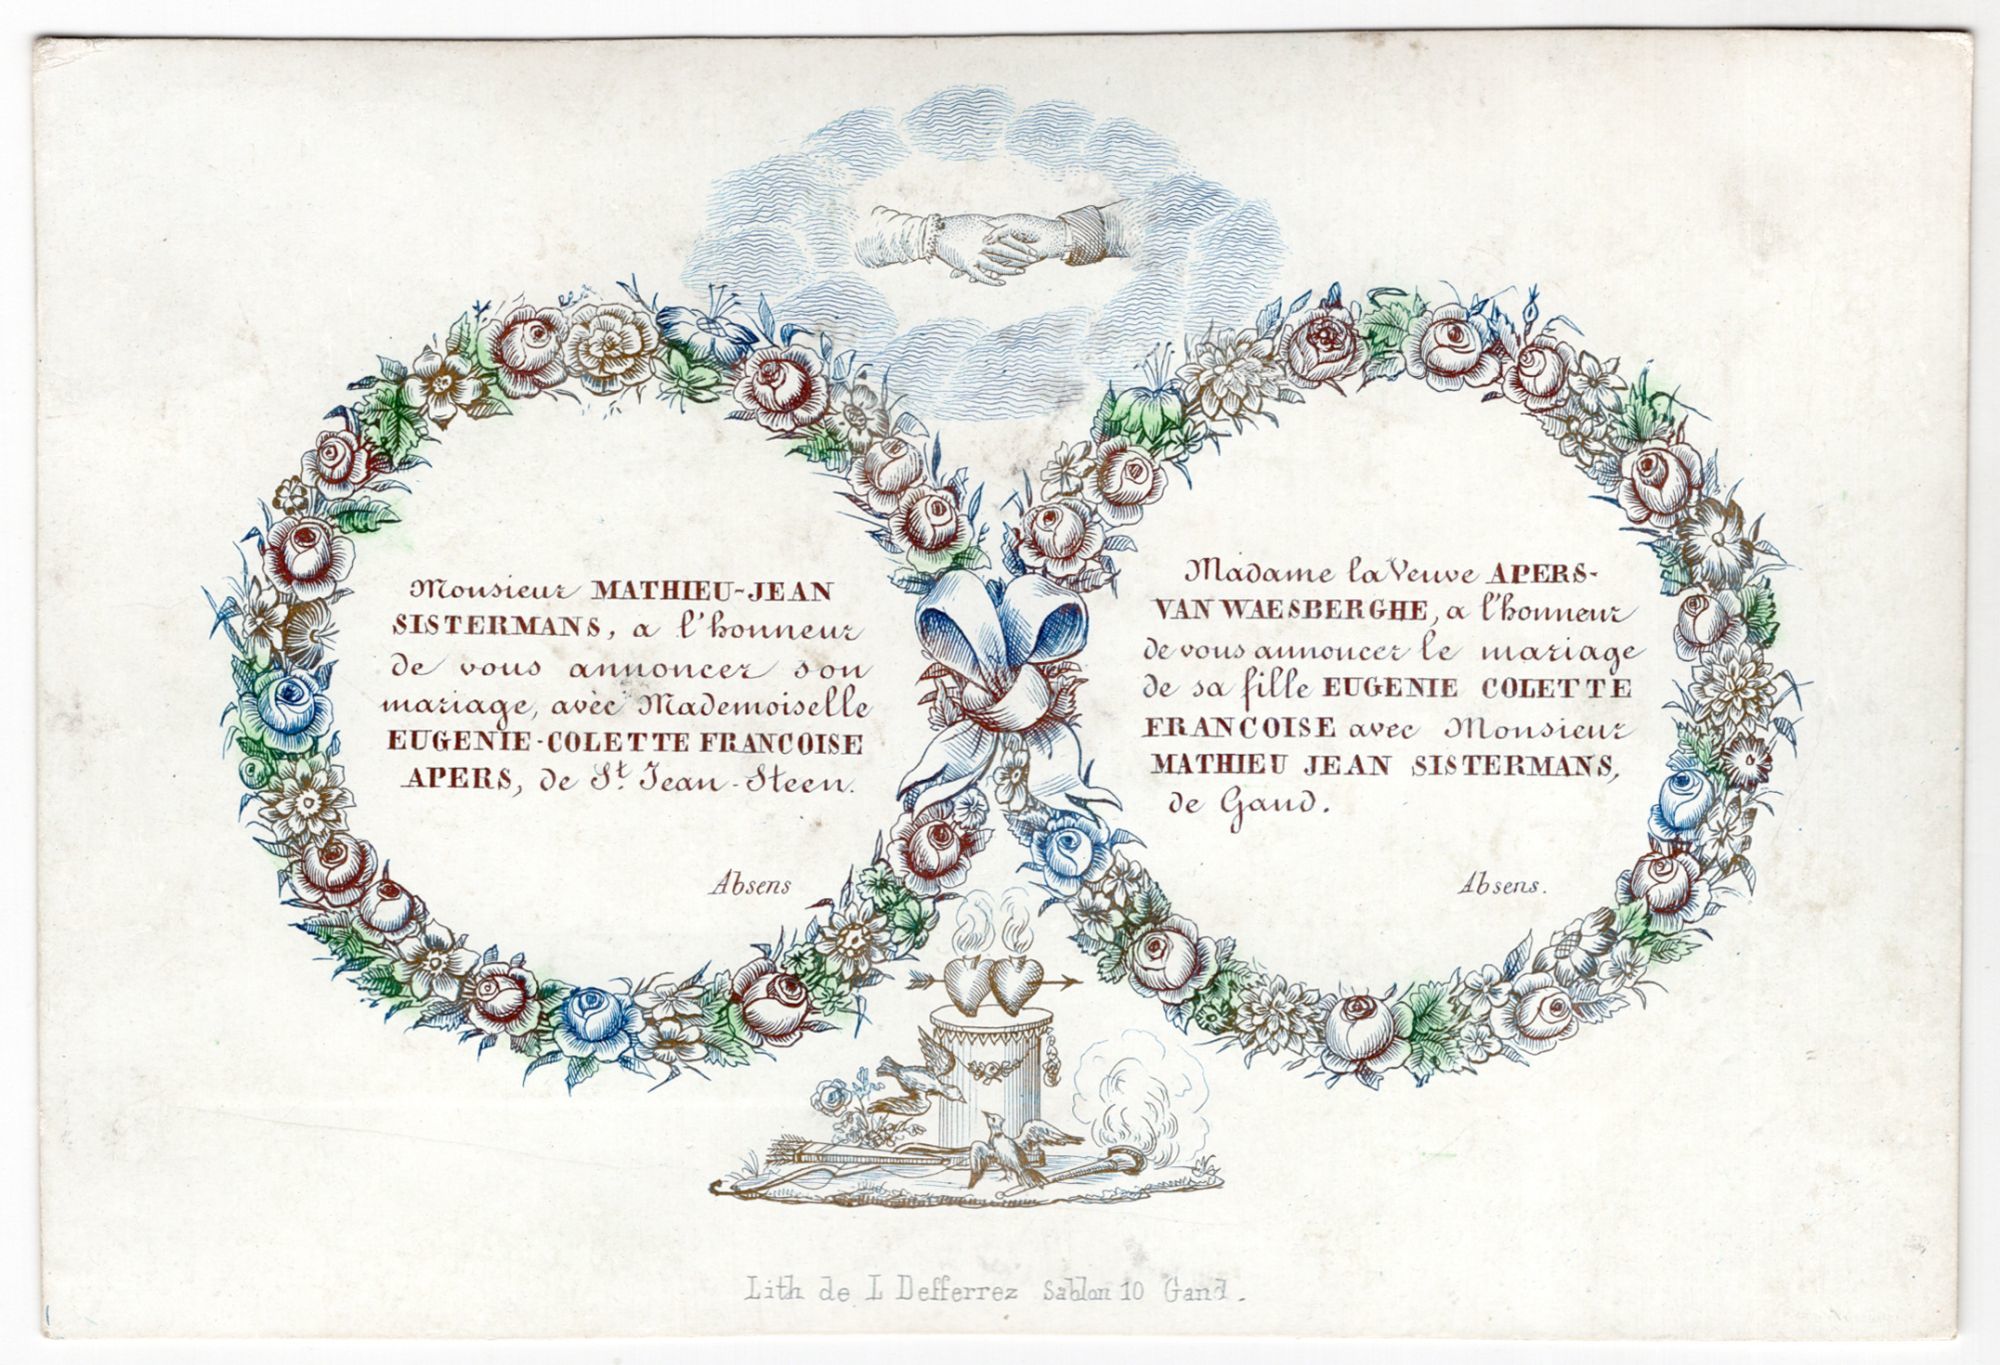 Monsieur MATHIEU-JEAN
SISTERMANS, a l'honneur
de vous annoncer son
mariage, avèc Mademoiselle
EUGENIE-COLETTE FRANCOISE
APERS, de St. Jean-Steen.
Absens
Madame la Veuve APERS-
VAN WAESBERGHE, a l'honneur
de vous annoncer le mariage
de sa fille EUGENIE COLETTE
FRANCOISE avec Monsieur
MATHIEU JEAN SISTERMANS,
de Gand.
Absens.
Lith de L Defferrez Sablon 10 Gand.